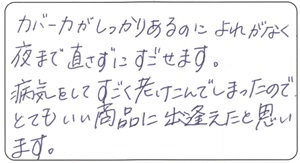 カバー力がしっかりあるのに よれがなく
夜まで直さずにすごせます。
病気をしてすごく老けこんでしまったので
とてもいい商品に出逢えたと思い
ます。